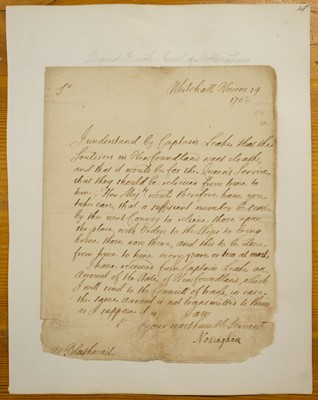 Sr
Whitehall Novem 19
1702
I understand by Captain Leake that the
Souldiers in Newfoundland want cloaths,
and that it would be for the Queens Service
that they should be releived from time to
time; Her Maty would therefore have you
take care, that a sufficient number be sent
by the next Convoy to releive those upon
the place, with Orders to the Ships to bring
home those now there, and this to be done
from time to time every year, or two at most,
I have received from Captain Leake an
Account of the State of Newfoundland, which
I will send to the Councill of trade, in case
the same account is not transmitted to them
as I suppose it is. I am
your most humble Servant
Nottingham
Mr Blathwait